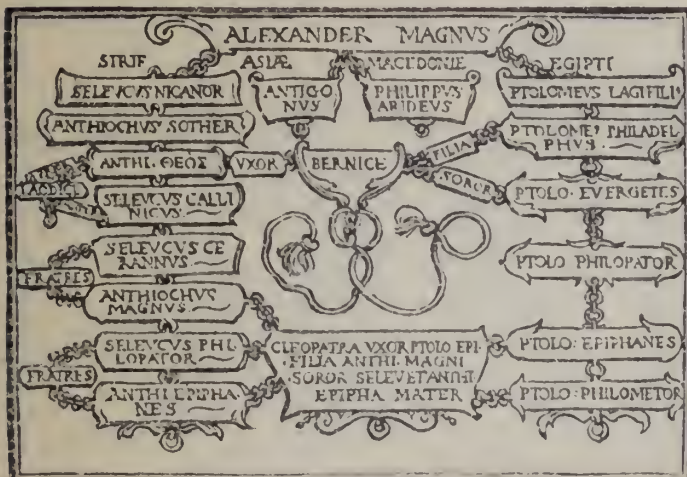 ALEXANDER MAGNVS
STRIE ASIÆ MACEDONIE EGIPTI
SELEVCVS NICANOR
ANTIGO
NVS
PHILIPPVS
ARIDEVS
PTOLOMEVS LAGIFILI⁹
ANTHIOCHVS SOTHER
PTOLOME⁹ PHILADEL
PHVS
ANTHI·ΘEOS
VXOR
BERNICE
FILIA
SOROR
LAODICE
SELEVCVS CALLI
NICVS
PTOLO·EVERGETES
SELEVCVS CE
RANNVS
FRATRES
ANTHIOCHVS
MAGNVS
PTOLO PHILOPATOR
SELEVCVS PHI
LOPATOR
FRATRES
ANTHI EPIPHA
NES
CLEOPATRA VXOR PTOLO EPI
FILIA ANTHI·MAGNI
SOROR SELEVET ANTHI
EPIPHA MATER
PTOLO·EPIPHANES
PTOLO·PHILOMETOR